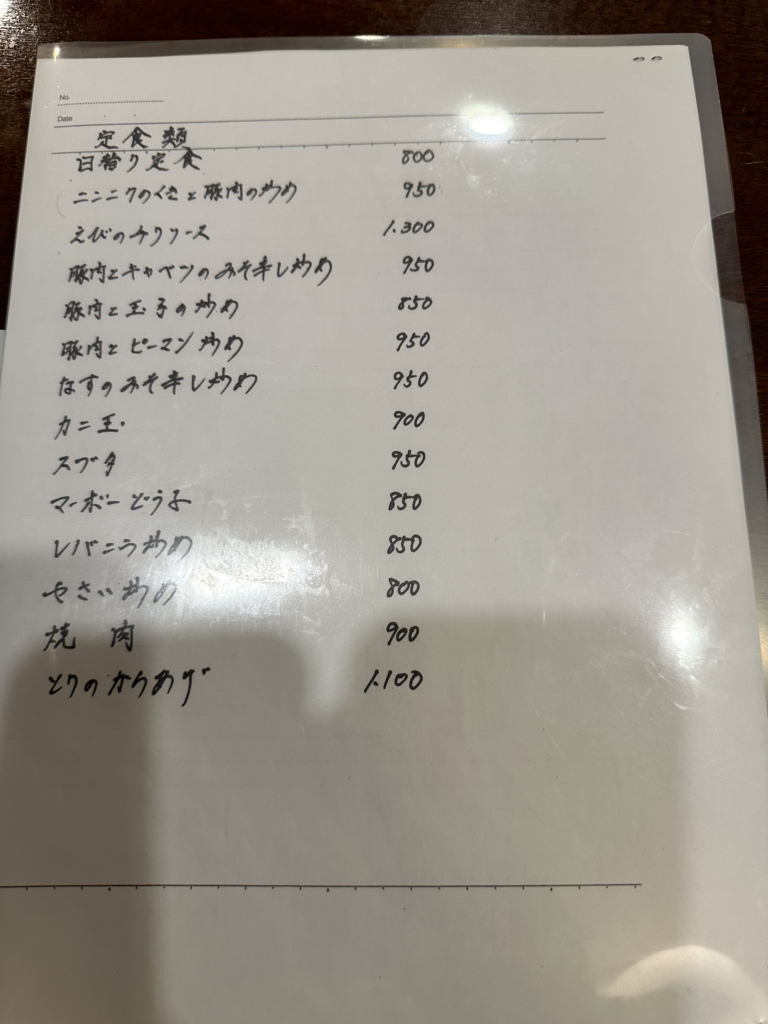 No.
Date
定食類
日替り定食 800
ニンニクのくきと豚肉の炒め 950
えびのチリソース 1.300
豚肉とキャベツのみそ辛し炒め 950
豚肉と玉子の炒め 850
豚肉とピーマン炒め 950
なすのみそ辛し炒め 950
カニ玉 900
スブタ 950
マーボーどうふ 850
レバニラ炒め 850
やさい炒め 800
焼 肉 900
とりのからあげ 1.100